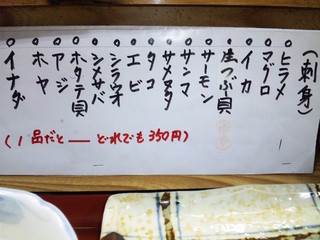 (刺身)
○ヒラメ
○マグロ
○イカ
○生つぶ貝
○サーモン
○サンマ
○サメタタ
○タコ
○エビ
○シラウオ
○シメサバ
○ホタテ貝
○アジ
○ホヤ
○イナダ
(1品だと――どれでも350円)